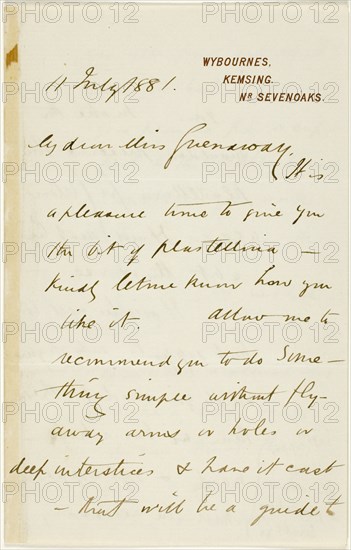 WYBOURNES,
KEMSING,
NR SEVENOAKS.
11 July 1881.
My dear Miss Greenaway,
It is
a pleasure to me to give you
the bit of plastellina –
Kindly let me know how you
like it. Allow me to
recommend you to do some-
thing simple without fly-
away arms or holes or
deep interstices & have it cast
– that will be a guide to
PHOTO12